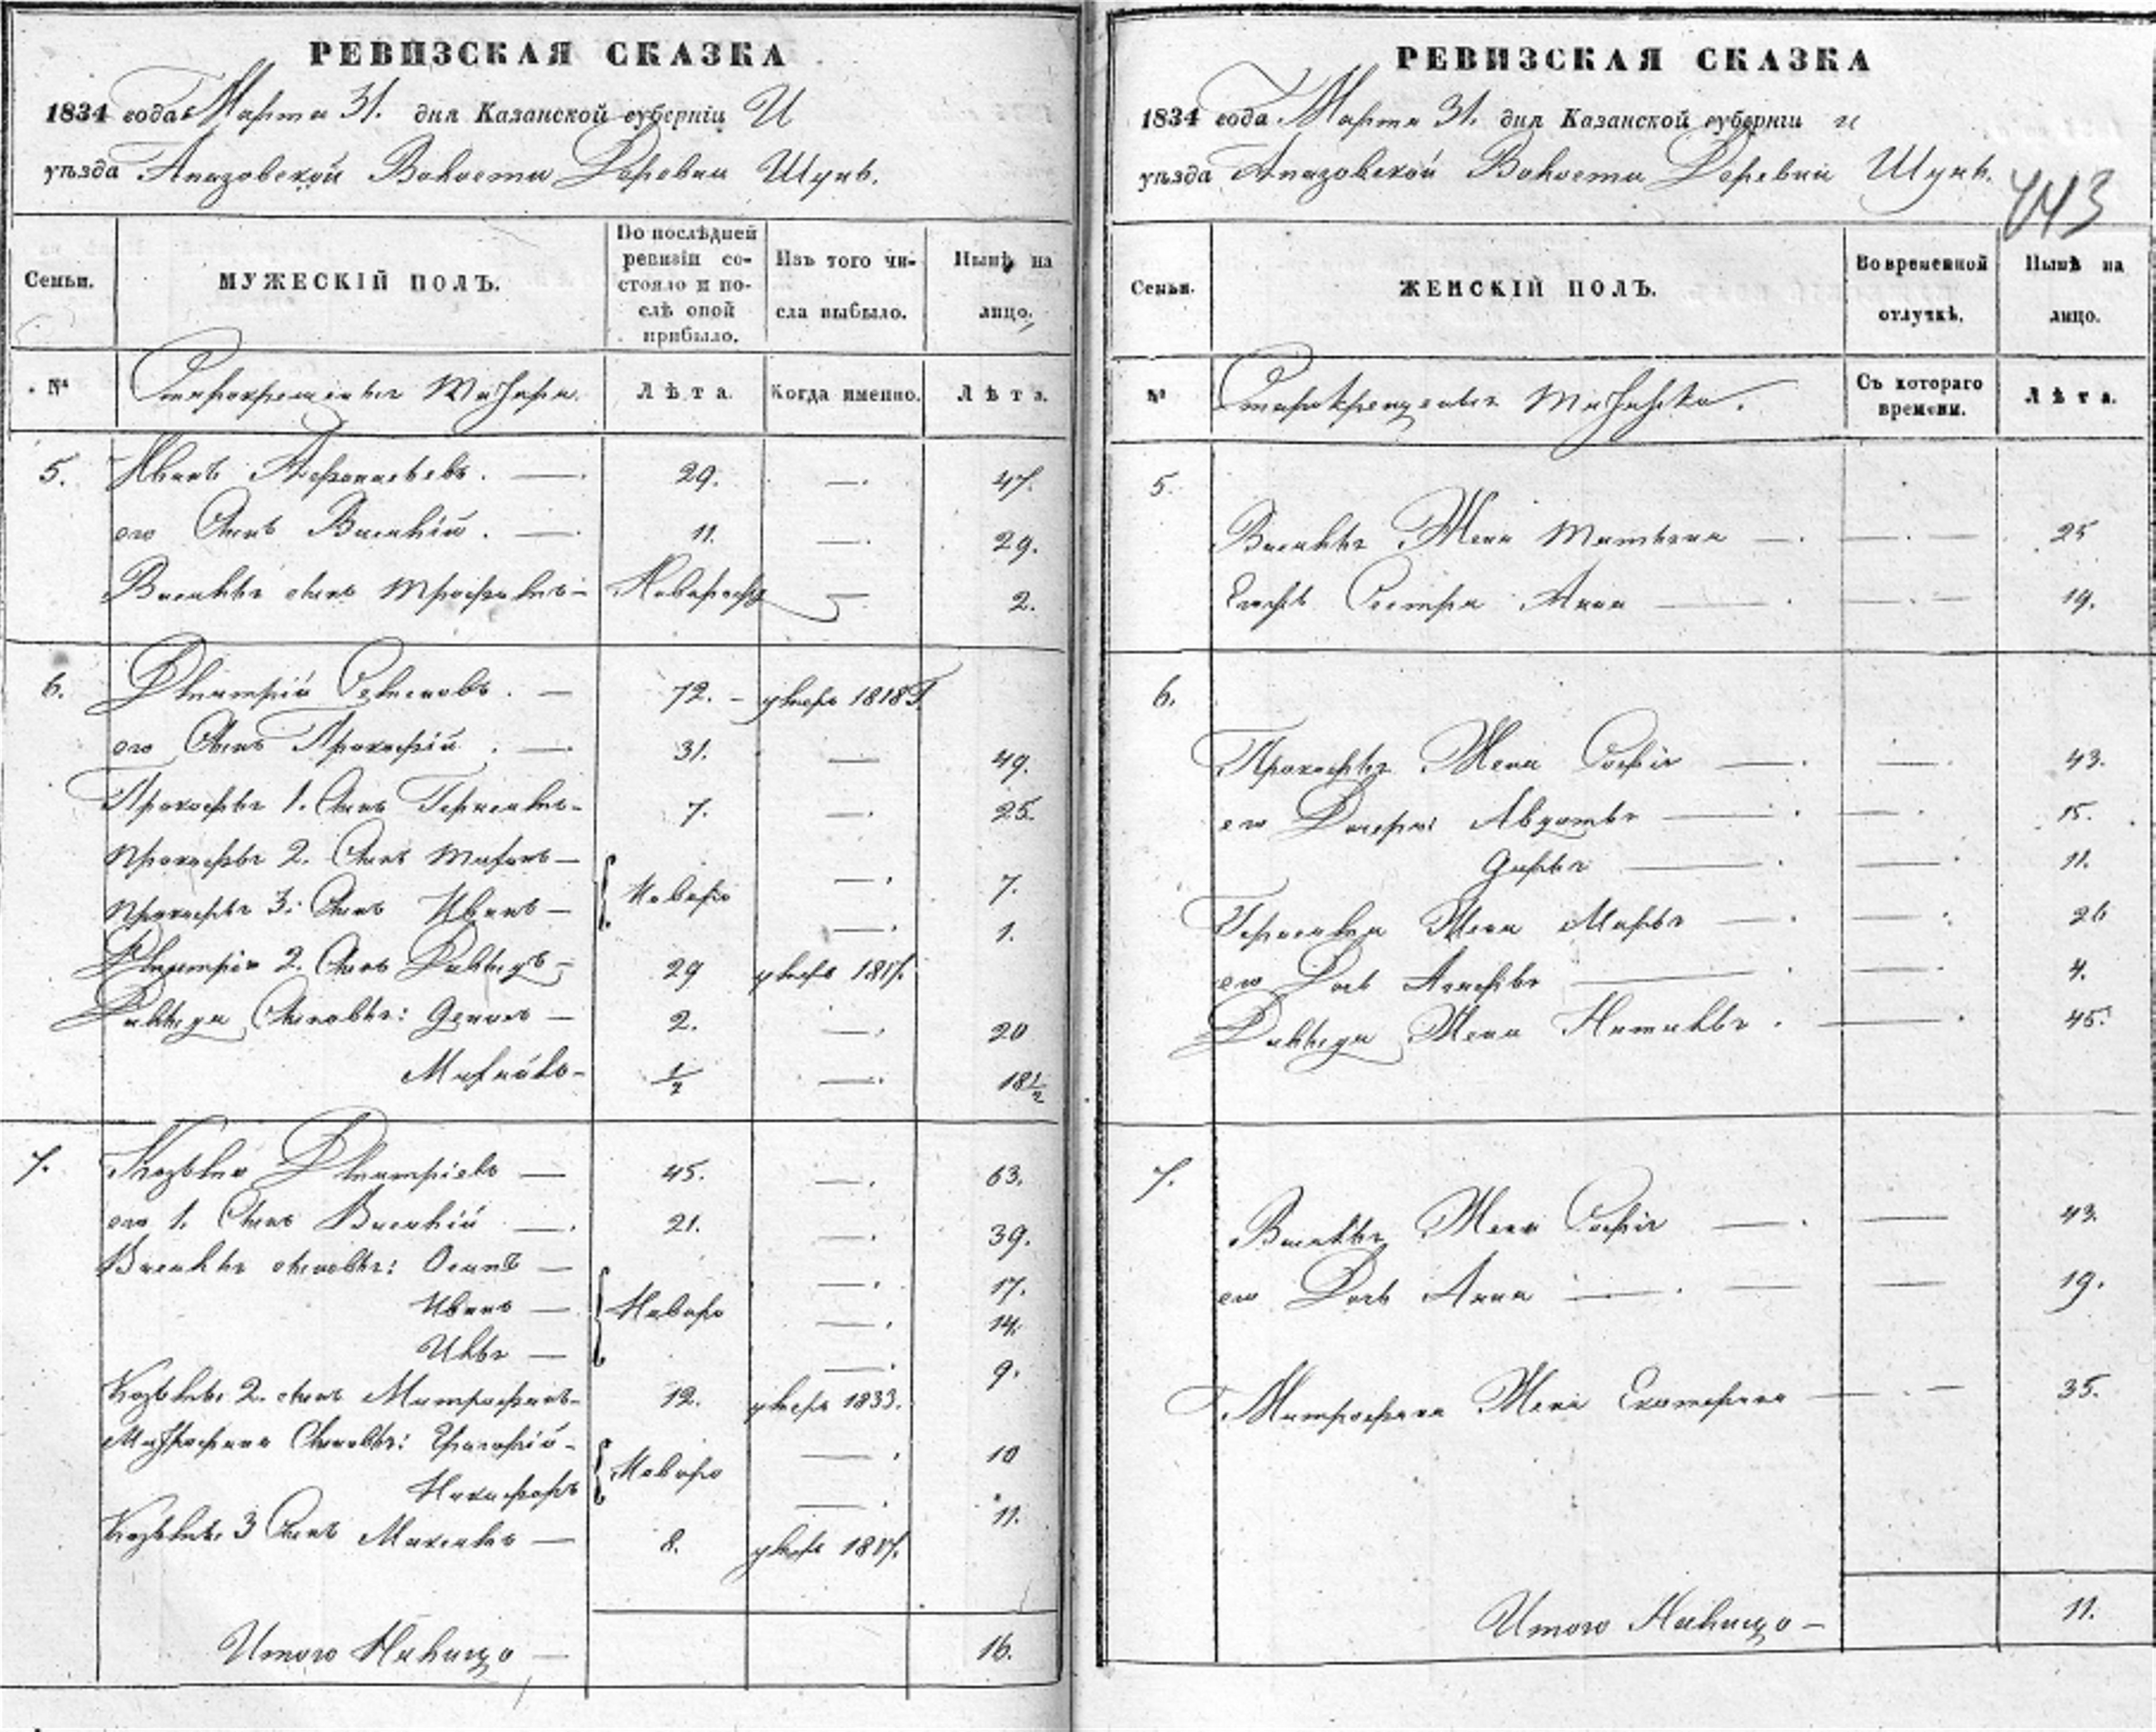 РЕВИЗСКАЯ СКАЗКА
1834 года Марта 31. дня Казанской губерніи И
уѣзда Апазовской Волости Деревни Шунь.
Семьи.
МУЖЕСКІЙ ПОЛЪ.
По послѣдней ревизіи со-
стояло и по-
слѣ оной
прибыло.
Изъ того чи-
сла выбыло.
Нынѣ на
лицо.
№ Старокрещеныя Татара. Лѣта. Когда именно. Лѣта.
5. Иванъ Афонасьевъ. — 29. —. 47.
его Сынъ Василій. — 11. —. 29.
Васильи сынъ Трофимъ — Новорож —. 2.
6. Дмитрій Семеновъ. — 72. — умеръ 1818 Г
его Сынъ Прокофій. — 31. —. 49.
Прокофья 1. Сынъ Герасимъ — 7. —. 25.
Прокофья 2. Сынъ Тихонъ — —. 7.
Новоро
Прокофья 3: Сынъ Иванъ — —. 1.
Дмитрія 2. Сынъ Давыдъ — 29 умеръ 1817.
Давыда Сыновья: Денисъ — 2. —. 20
Михайло — 1/2 —. 18 1/2
7. Козьма Дмитріевъ — 45. —. 63.
его 1. Сынъ Василій —. 21. —. 39.
Василья сыновья: Осипъ — —. 17.
Иванъ — Новоро —. 14.
Илья — —. 9.
Козьмы 2. сынъ Митрофанъ — 12. умеръ 1833.
Митрофана Сыновья: Григорій — —. 10
Новоро
Никифоръ —. 11.
Козьмы 3 Сынъ Максимъ — 8. умеръ 1817.
Итого Налицо — 16.
РЕВИЗСКАЯ СКАЗКА
1834 года Марта 31. дня Казанской губерніи и
уѣзда Апазовской Волости Деревни Шунь.
443
Семьи.
ЖЕНСКІЙ ПОЛЪ.
Во временной
отлучкѣ.
Нынѣ на
лицо.
№ Старокрещеныя Татарки. Съ котораго
времени. Лѣта.
5. Василья Жена Татьяна —. — . — 25
Сестра Анна — . — . — 19.
6. Прокофья Жена Софія — . — . 43.
его Дочери: Авдотья — . — . 15.
Дарья — . — . 11.
Герасима Жена Марья — . — . 26
его Дочь — . — . 4.
Давыда Жена Наталья . — . 45.
7. Василья Жена Софія — . — 43.
его Дочь Анна — . — — 19.
Митрофана Жена Екатерина — . — 35.
Итого Налицо — 11.